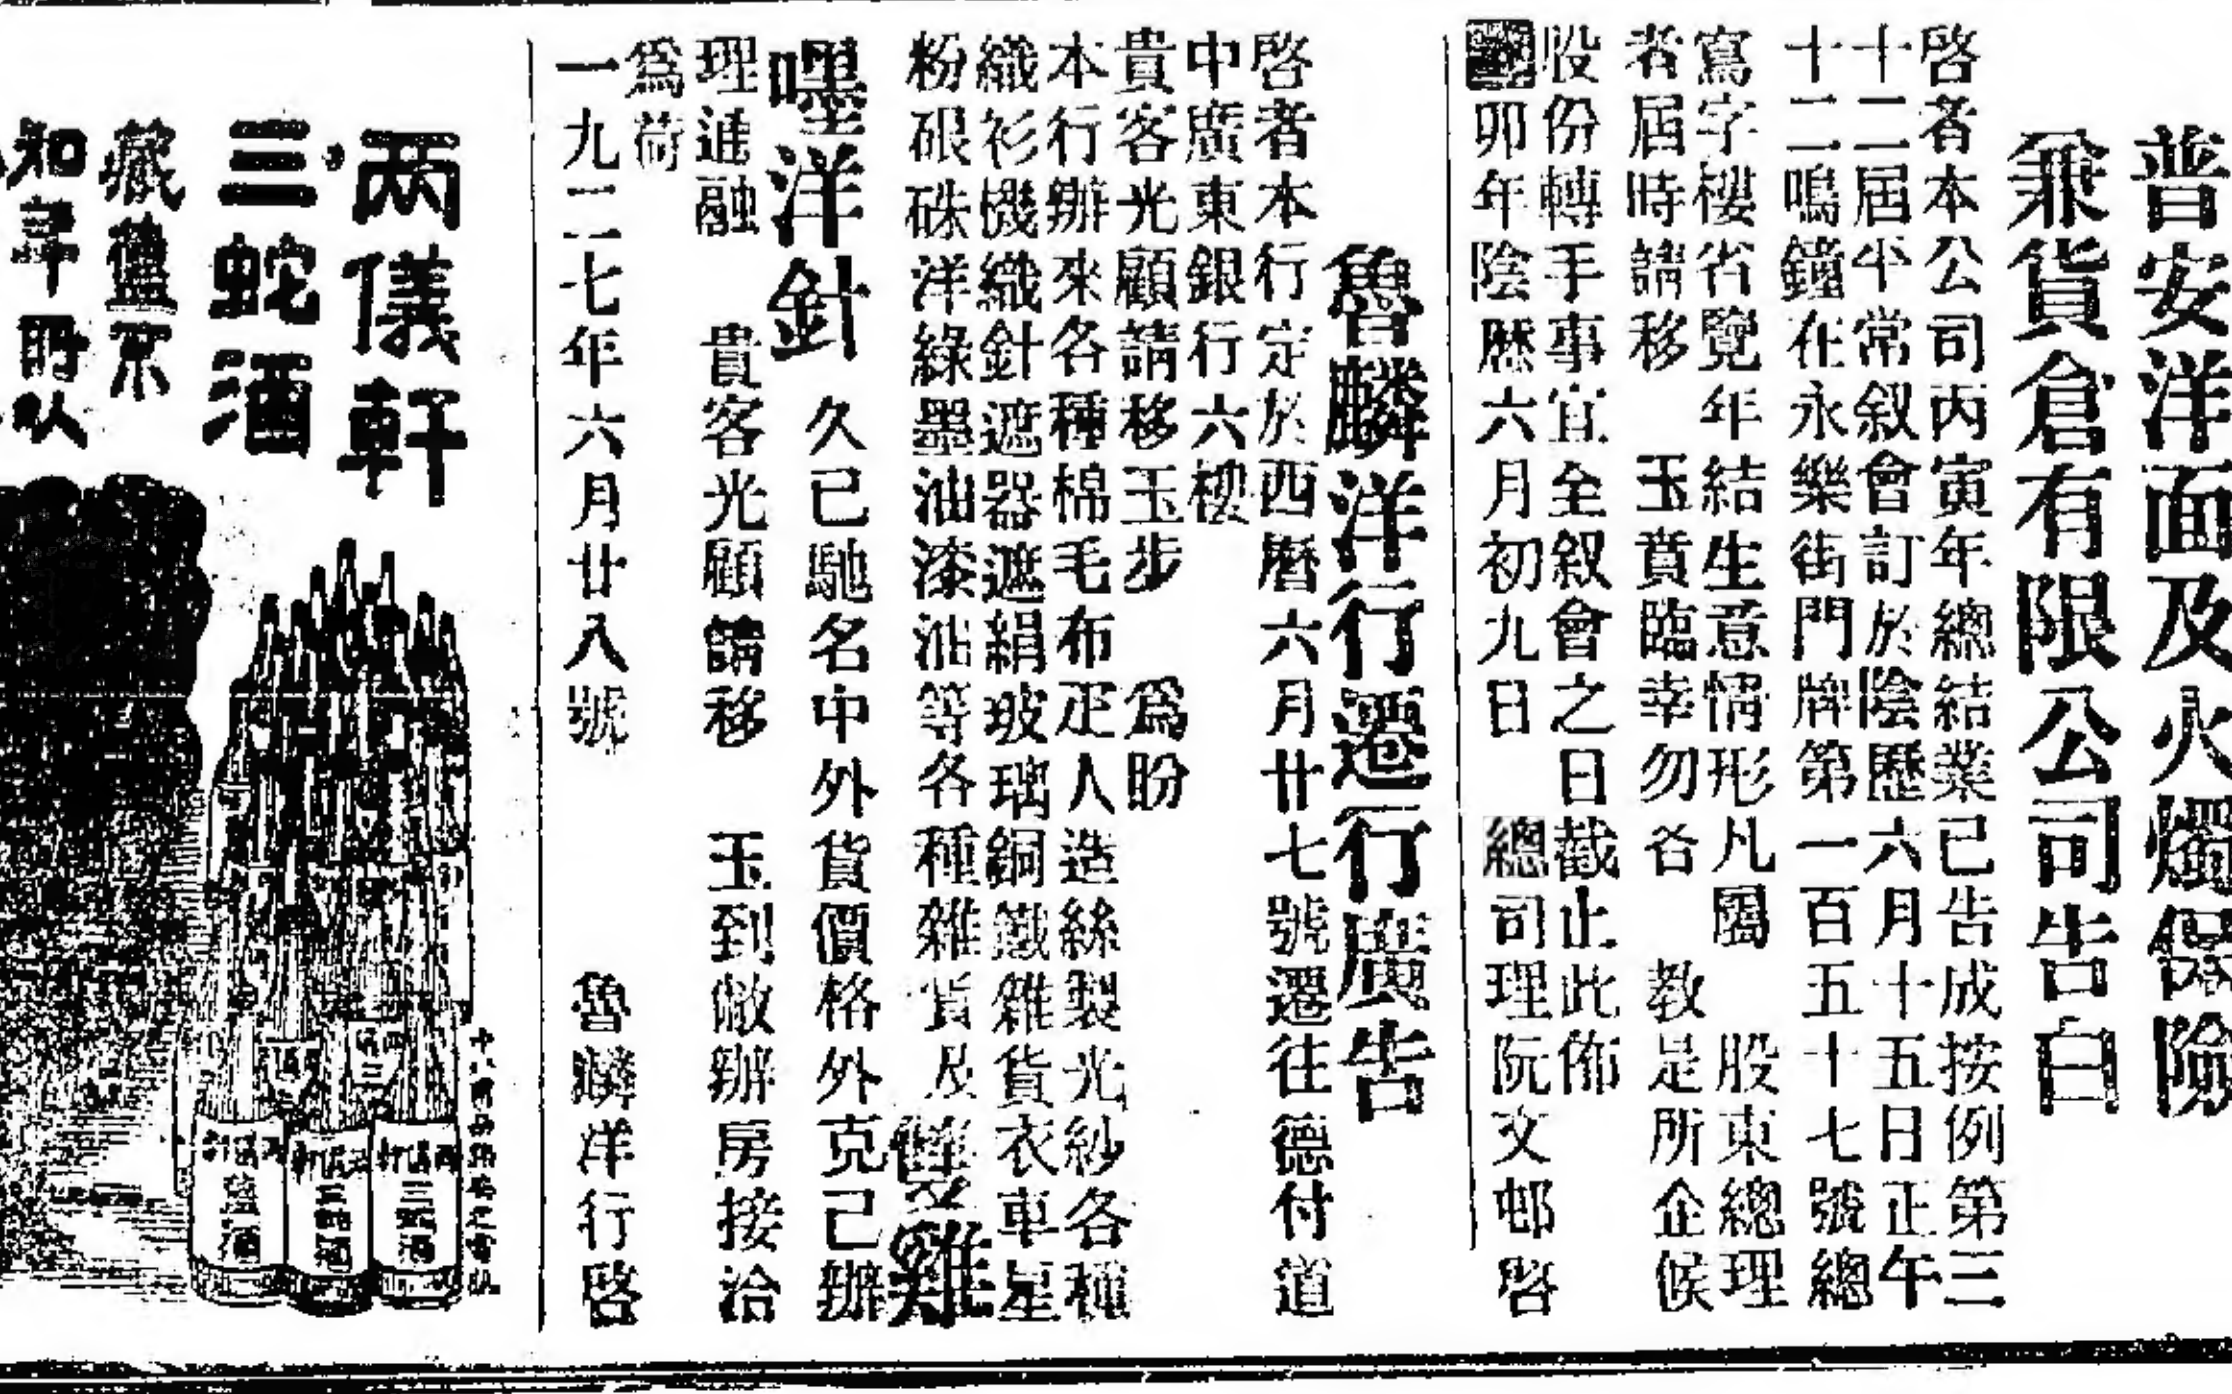 普安洋面及火燭保險
兼貨倉有限公司告白
啓者本公司丙寅年總結業已告成按例第三
十二屆平常叙會訂於陰歷六月十五日正午
十二鳴鐘在永樂街門牌第一百五十七號總
寫字樓省覽年結生意情形凡屬 股東總理
者屆時請移 玉賁臨幸勿吝 教是所企候
股份轉手事宜全叙會之日截止此佈
卯年陰歷六月初九日 總司理阮文邨啓
魯麟洋行遷行廣告
啓者本行定於西曆六月廿七號遷往德付道
中廣東銀行六樓
貴客光顧請移玉步 爲盼
本行辦來各種棉毛布疋人造絲製光紗各種
織衫機織針遮器遮絹玻璃銅鐵雜貨衣車星
粉硍硃洋綠墨油漆油等各種雜貨及雙雞
嘜洋針 久已馳名中外貨價格外克己辦
理通融 貴客光顧請移 玉到敝辦房接洽
爲荷
一九二七年六月廿八號 魯麟洋行啓
两儀軒
三蛇酒